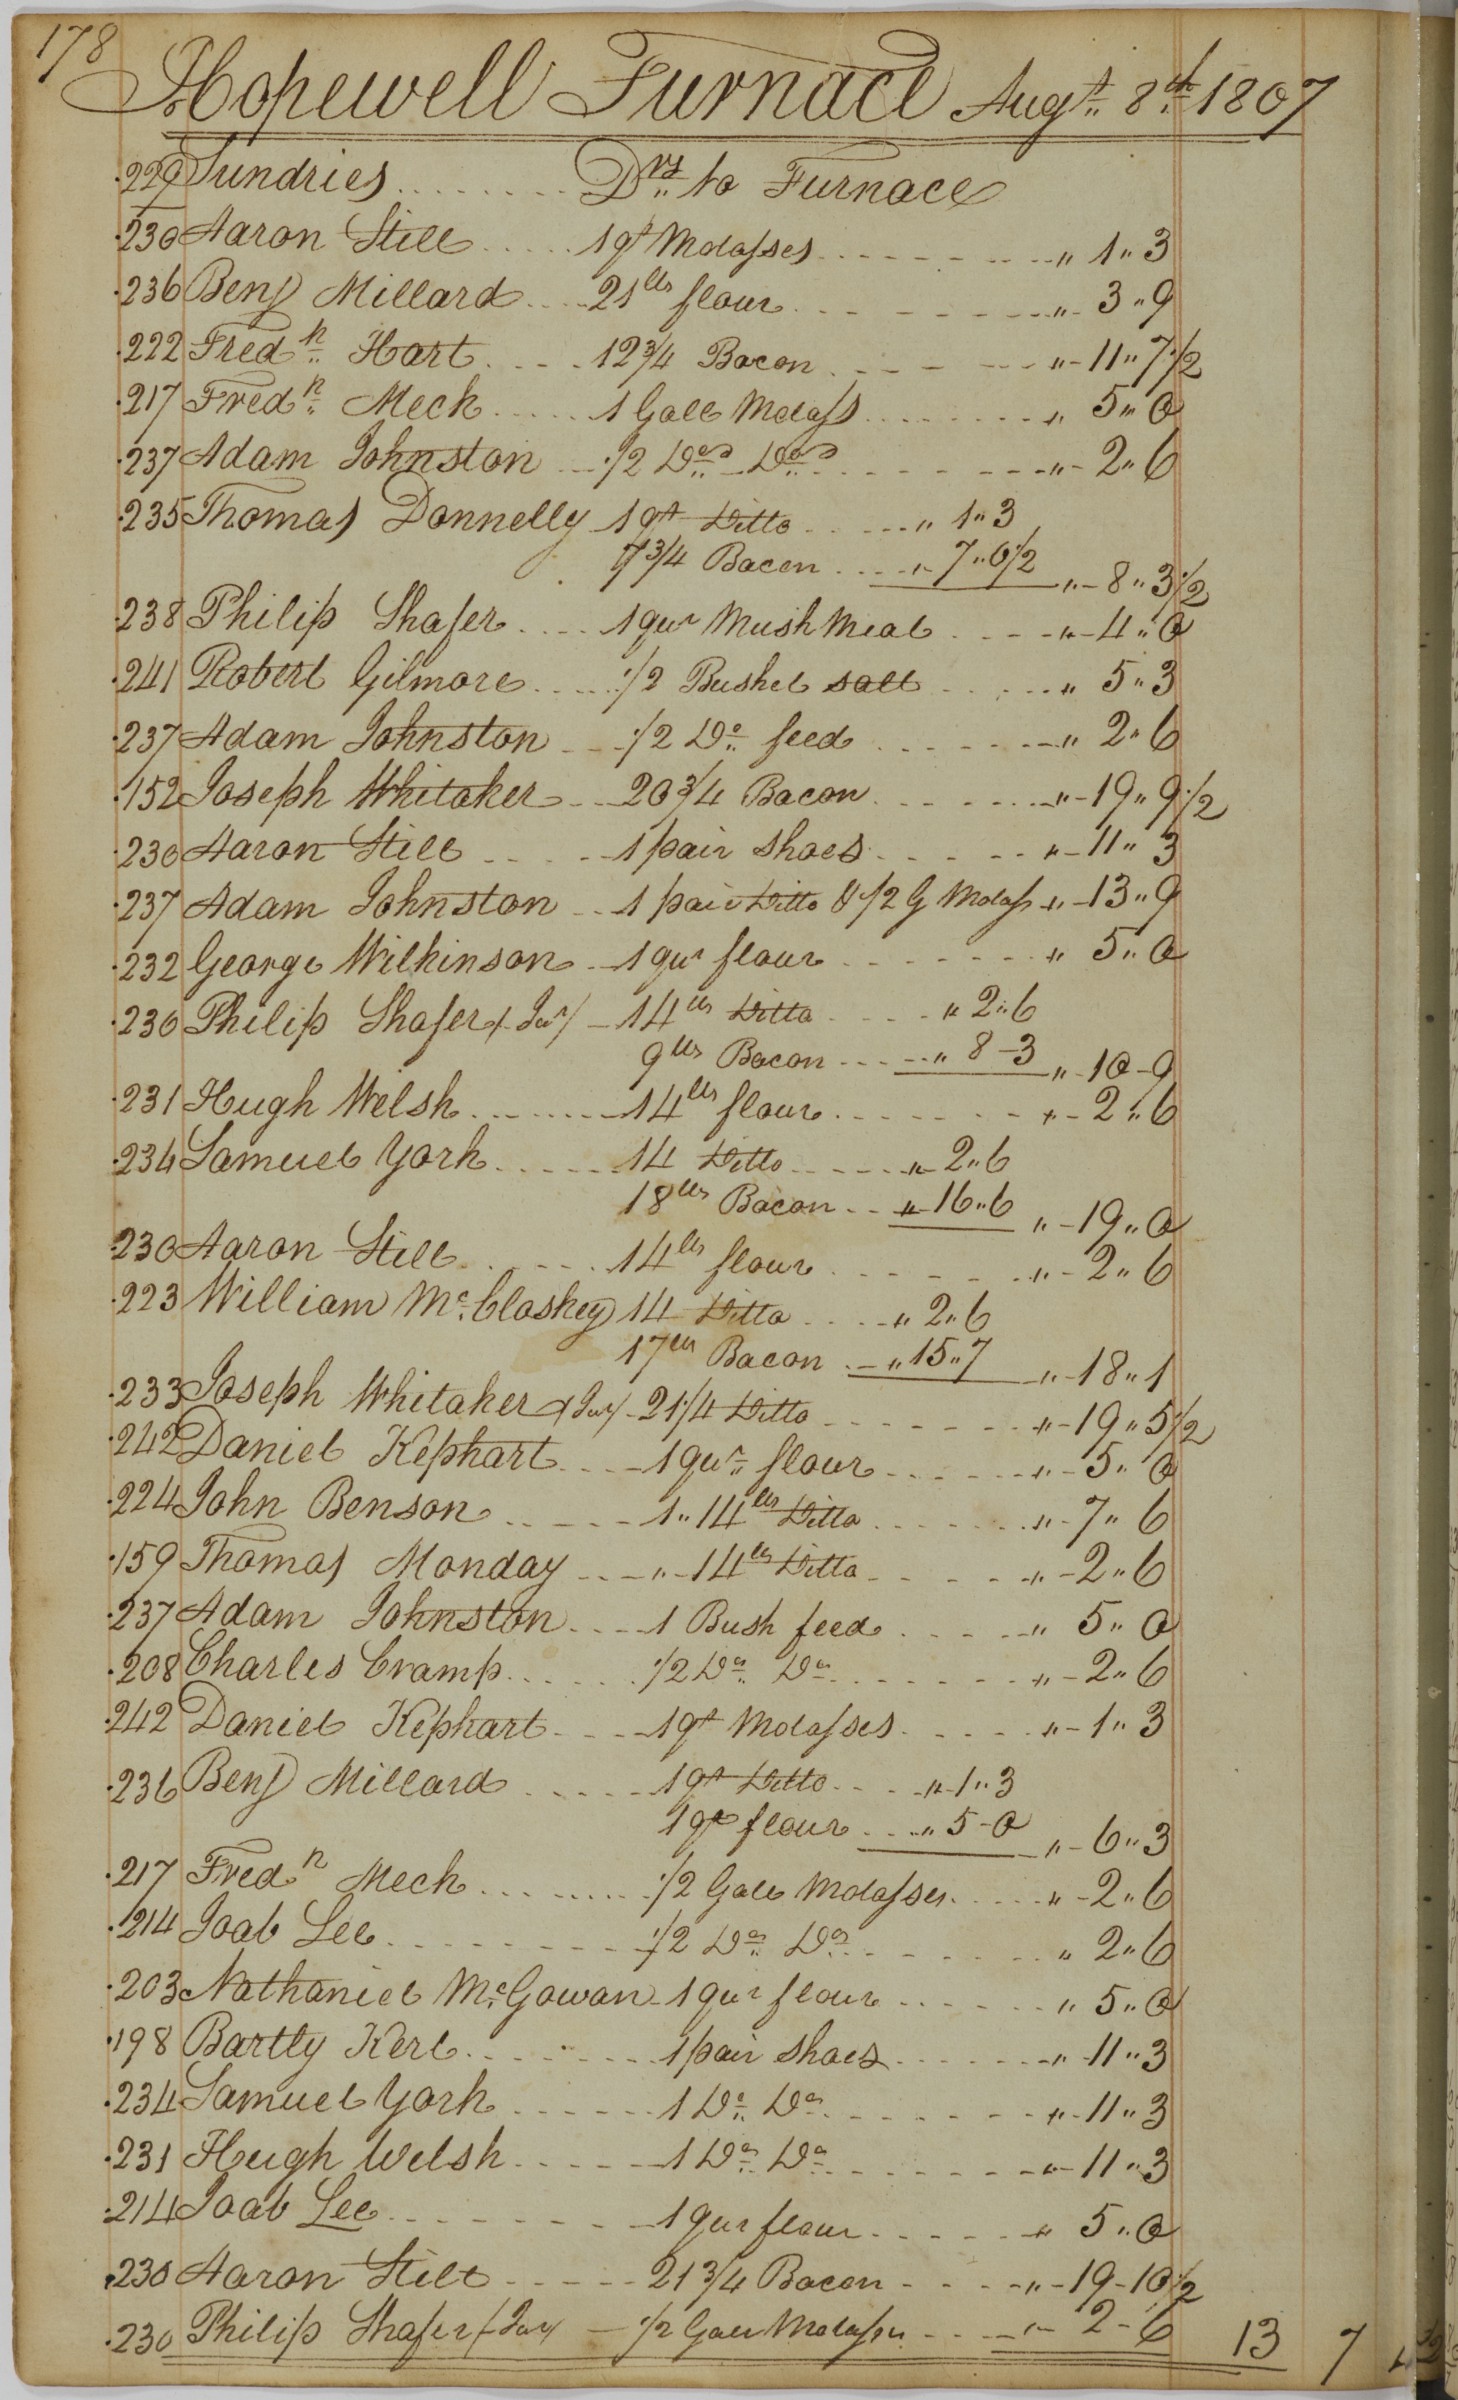 178
Hopewell Furnace Augt 8th 1807
229 Sundries ........ Drs to Furnace
230 Aaron Still ..... 1 qt Molasses ........ " 1" 3
236 Benj Millard .... 21 lbs flour ........ " 3" 9
222 Fredk Hart .... 12 3/4 Bacon ........ " 11" 7 1/2
217 Fredk Meck ..... 1 Gall Molass ........ " 5" 0
237 Adam Johnston ... 1/2 Do Do ........ " 2" 6
235 Thomas Donnelly 1 qt Ditto ..... " 1" 3
7 3/4 Bacon .... " 7" 0 1/2 " 8" 3 1/2
238 Philip Shafer .... 1 qur Mush Meal .... " 4" 0
241 Robert Gilmore ..... 1/2 Bushel salt ..... " 5" 3
237 Adam Johnston ... 1/2 Do feed ....... " 2" 6
152 Joseph Whitaker ... 20 3/4 Bacon ....... " 19" 9 1/2
230 Aaron Still ..... 1 pair shoes ..... " 11" 3
237 Adam Johnston ... 1 pair Ditto & 1/2 G Molass " 13" 9
232 George Wilkinson ... 1 qur flour ....... " 5" 0
230 Philip Shafer (Jur) - 14 lbs Ditto .... " 2" 6
9 lbs Bacon ..... " 8-3 " 10-9
231 Hugh Welsh ........ 14 lbs flour ....... " 2" 6
234 Samuel York ...... 14 Ditto ..... " 2" 6
18 lbs Bacon ... " 16" 6 " 19" 0
230 Aaron Still ..... 14 lbs flour ....... " 2" 6
223 William Mc Closkey 14 Ditto .... " 2" 6
17 lbs Bacon ... " 15" 7 " 18" 1
233 Joseph Whitaker (Jur) - 21 1/4 Ditto ....... " 19" 5 1/2
242 Daniel Kephart .... 1 qur flour ...... " 5" 0
224 John Benson ..... 1" 14 lbs Ditto ...... " 7" 6
159 Thomas Monday ... " 14 lbs Ditto ...... " 2" 6
237 Adam Johnston .... 1 Bush feed ..... " 5" 0
208 Charles Cramp ...... 1/2 Do Do ....... " 2" 6
242 Daniel Kephart .... 1 qt Molasses ..... " 1" 3
236 Benj Millard ..... 1 qt Ditto ... " 1" 3
1 qr flour .... " 5-0 " 6" 3
217 Fredk Meck ......... 1/2 Gall Molasses ..... " 2" 6
214 Joab Lee ......... 1/2 Do Do ....... " 2" 6
203 Nathaniel McGowan - 1 qur flour ...... " 5" 0
198 Bartly Kerl ........ 1 pair shoes ....... " 11" 3
234 Samuel York ...... 1 Do Do ....... " 11" 3
231 Hugh Welsh ...... 1 Do Do ....... " 11" 3
214 Joab Lee ........ 1 qur flour ...... " 5" 0
230 Aaron Still ..... 21 3/4 Bacon ..... " 19-10 1/2
230 Philip Shafer (Jur) - 1/2 Gall Molasses .... " 2-6 13 7